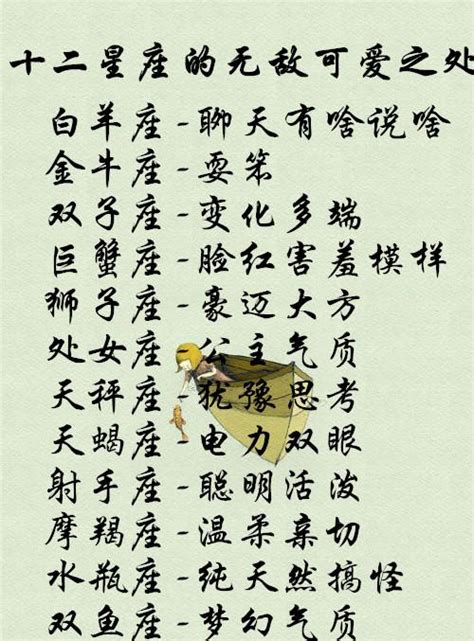 十二星座的无敌可爱之处
白羊座-聊天有啥说啥
金牛座-耍笨
双子座-变化多端
巨蟹座-脸红害羞模样
狮子座-豪迈大方
处女座-公主气质
天秤座-犹豫思考
天蝎座-电力双眼
射手座-聪明活泼
摩羯座-温柔亲切
水瓶座-纯天然搞怪
双鱼座-梦幻气质